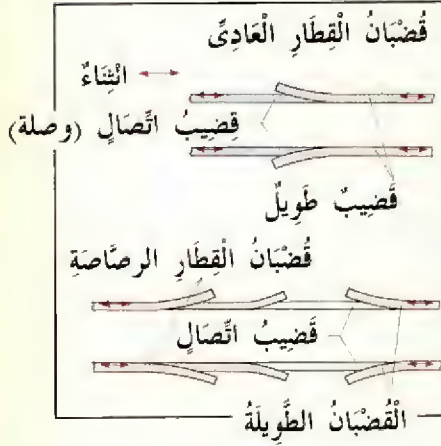 قُضْبَانُ الْقِطَارِ الْعَادِىِّ
انْثِنَاءٌ
قِضِيبُ اتِّصَالٍ (وصلة)
قَضِيبٌ طَوِيلٌ
قُضْبَانُ الْقِطَارِ الرصَّاصَةِ
قَضِيبُ اتِّصَالٍ
الْقُضْبَانُ الطَّوِيلَةُ